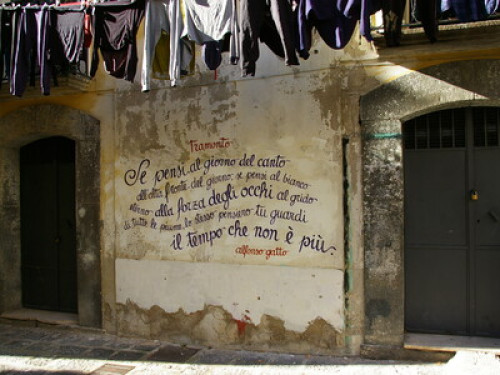 Tramonto
Se pensi al giorno del canto
all'alta fronte del giorno; se pensi al bianco
eterno alla forza degli occhi al grido
di tutte le piume, lo stesso pensiero tu guardi
il tempo che non è più.
alfonso gatto